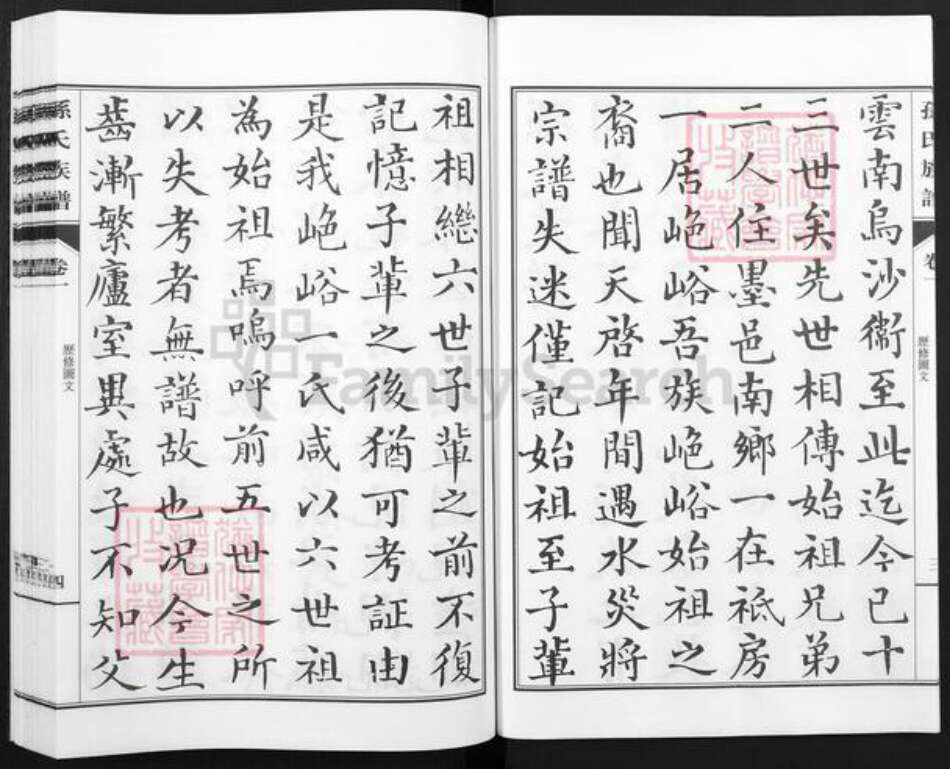 孫氏族譜 卷一 歷修圖文 三
雲南烏沙衞至此迄今已十
三世矣先世相傳始祖兄弟
二人住墨邑南鄉一在祗房
一居㟅峪吾族㟅峪始祖之
裔也聞天啓年間遇水災將
宗譜失迷僅記始祖至子輩
祖相繼六世子輩之前不復
記憶子輩之後猶可考証由
是我㟅峪一氏咸以六世祖
為始祖焉嗚呼前五世之所
以失考者無譜故也況今生
齒漸繁廬室異處子不知父
孫氏族譜 卷一 歷修圖文 四
FamilySearch